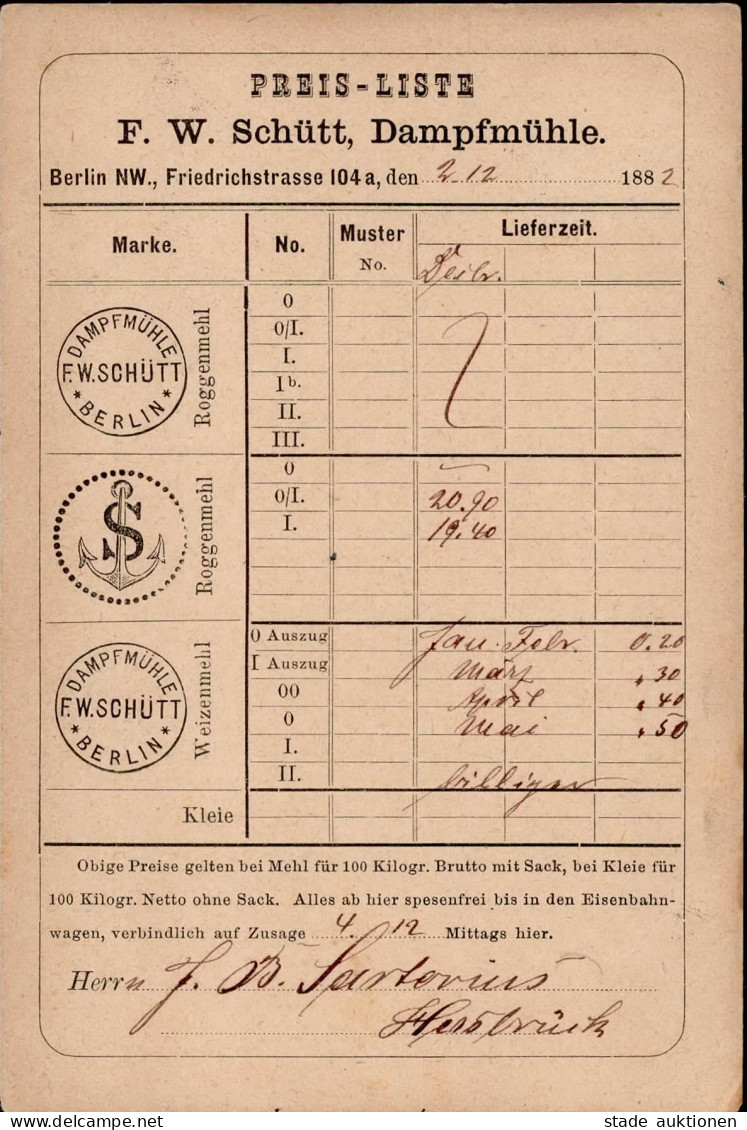 PREIS-LISTE
F. W. Schütt, Dampfmühle.
Berlin NW., Friedrichstrasse 104a, den 2. 12 1882
Marke. No. Muster No. Lieferzeit.
DAMPFMÜHLE
F.W.SCHÜTT
* BERLIN *
Roggenmehl
0
0/I.
I.
Ib.
II.
III.
S
Roggenmehl
0
0/I. 20.90
I. 19.40
DAMPFMÜHLE
F.W.SCHÜTT
* BERLIN *
Weizenmehl
0 Auszug Jan. Febr. 0.20
I Auszug März " 30
00 April " 40
0 Mai " 50
I.
II. billiger
Kleie
Obige Preise gelten bei Mehl für 100 Kilogr. Brutto mit Sack, bei Kleie für
100 Kilogr. Netto ohne Sack. Alles ab hier spesenfrei bis in den Eisenbahn-
wagen, verbindlich auf Zusage 4. 12 Mittags hier.
Herrn J. B. Sartorius
Hersbrück
stade auktionen